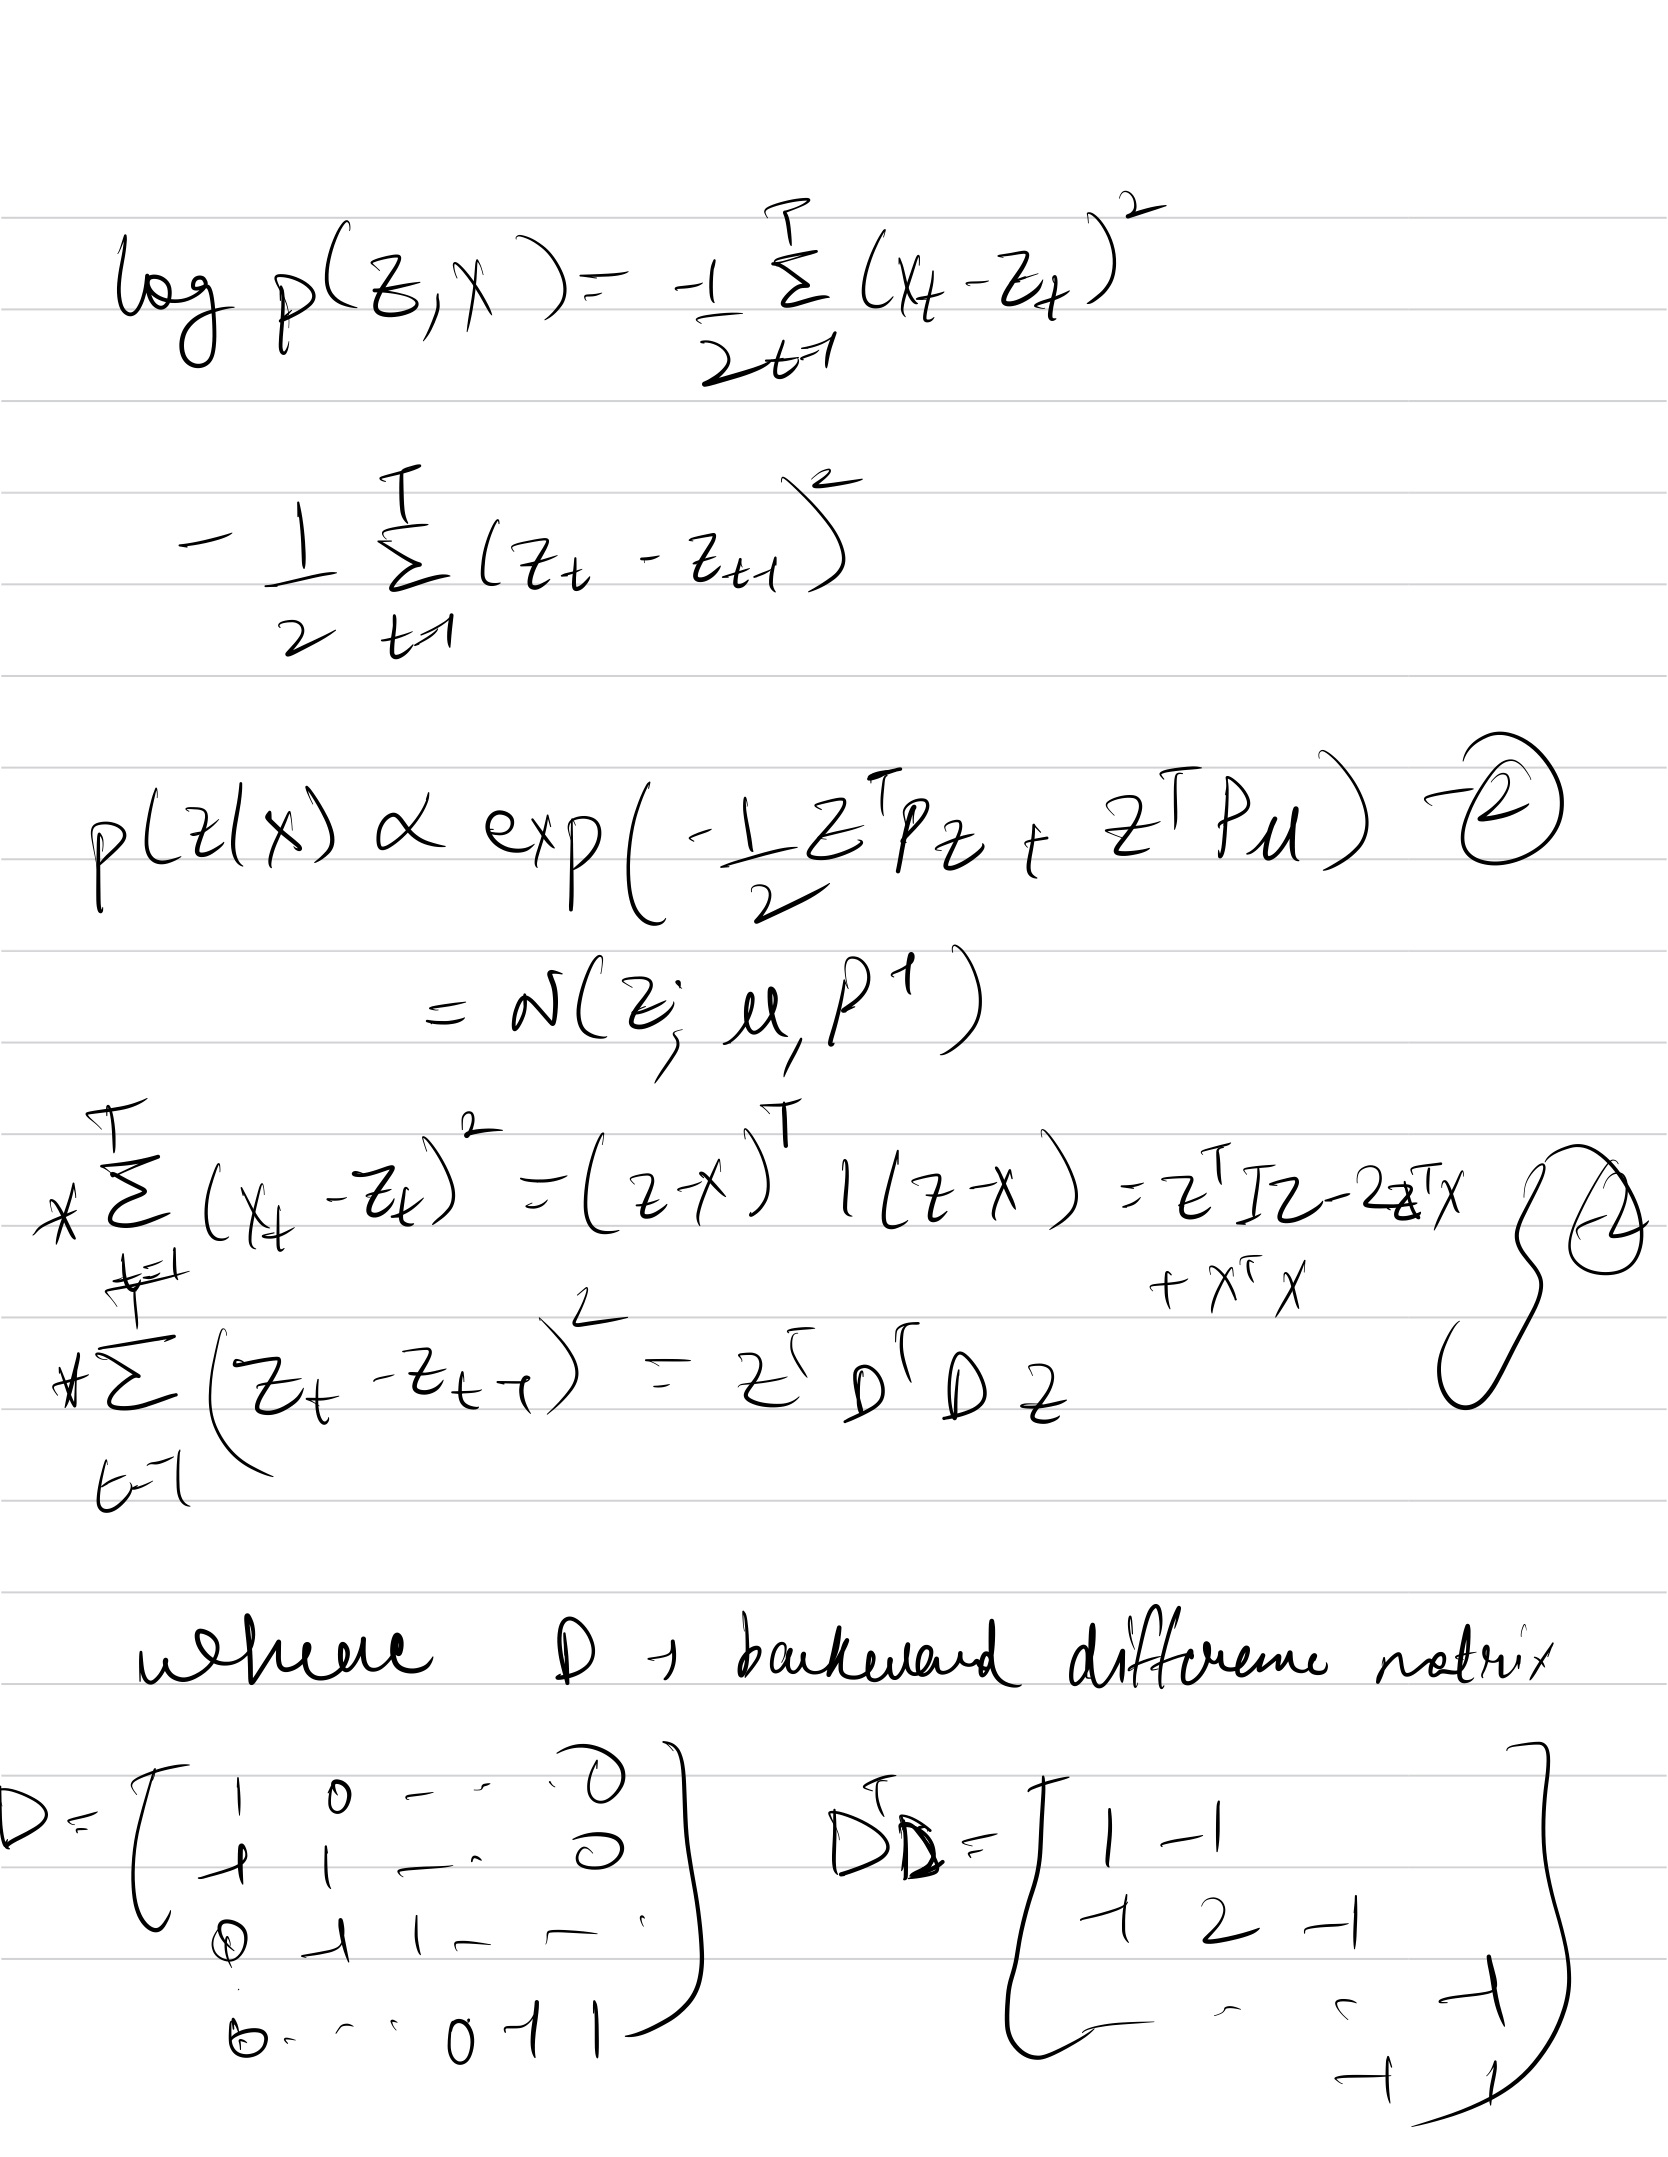 log p(z, x) = -1/2 Σ_{t=1}^{T} (x_t - z_t)^2
- 1/2 Σ_{t=1}^{T} (z_t - z_{t-1})^2
p(z|x) ∝ exp(-1/2 z^T P z + z^T P μ) - ②
= N(z; μ, P^{-1})
* Σ_{t=1}^{T} (x_t - z_t)^2 = (z-x)^T I (z-x) = z^T I z - 2z^T x + x^T x
* Σ_{t=1}^{T} (z_t - z_{t-1})^2 = z^T D^T D z
where D → backward difference matrix
D = [ 1 0 - - · 0
-1 1 - · 0
0 -1 1 - - ·
0 · - · 0 -1 1 ]
D^T D = [ 1 -1
-1 2 -1
- - - -1
-1 1 ]